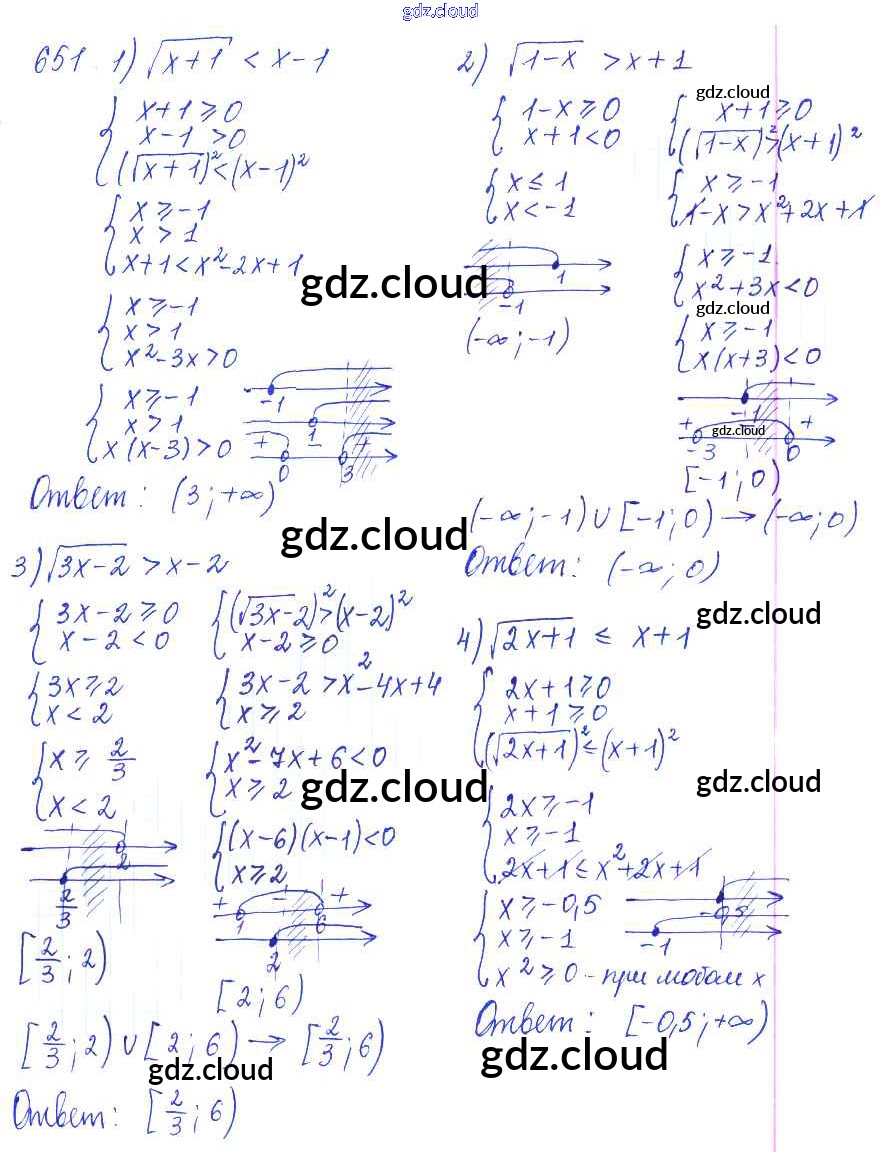 gdz.cloud
651 1) √(x+1) < x-1
{ x+1 ⩾ 0
x-1 > 0
(√(x+1))² < (x-1)²
{ x ⩾ -1
x > 1
x+1 < x²-2x+1
gdz.cloud
{ x ⩾ -1
x > 1
x²-3x > 0
{ x ⩾ -1
x > 1
x(x-3) > 0
-1
1
+ - +
0 3
Ответ: (3; +∞)
2) √(1-x) > x+1
gdz.cloud
{ 1-x ⩾ 0
x+1 < 0
{ x ≤ 1
x < -1
1
-1
(-∞; -1)
{ x+1 ⩾ 0
(√(1-x))² > (x+1)²
{ x ⩾ -1
1-x > x²+2x+1
{ x ⩾ -1
x²+3x < 0
gdz.cloud
{ x ⩾ -1
x(x+3) < 0
-1
+ - +
gdz.cloud
-3 0
[-1; 0)
(-∞; -1) ∪ [-1; 0) → (-∞; 0)
Ответ: (-∞; 0)
gdz.cloud
3) √(3x-2) > x-2
{ 3x-2 ⩾ 0
x-2 < 0
{ 3x ⩾ 2
x < 2
{ x ⩾ 2/3
x < 2
2
2/3
[2/3; 2)
{ (√(3x-2))² > (x-2)²
x-2 ⩾ 0
{ 3x-2 > x²-4x+4
x ⩾ 2
{ x²-7x+6 < 0
x ⩾ 2
gdz.cloud
{ (x-6)(x-1) < 0
x ⩾ 2
+ - +
1 6
2
[2; 6)
[2/3; 2) ∪ [2; 6) → [2/3; 6)
gdz.cloud
Ответ: [2/3; 6)
gdz.cloud
4) √(2x+1) ≤ x+1
{ 2x+1 ⩾ 0
x+1 ⩾ 0
(√(2x+1))² ≤ (x+1)²
gdz.cloud
{ 2x ⩾ -1
x ⩾ -1
2x+1 ≤ x²+2x+1
{ x ⩾ -0,5
x ⩾ -1
x² ⩾ 0 - при любом x
-0,5
-1
Ответ: [-0,5; +∞)
gdz.cloud